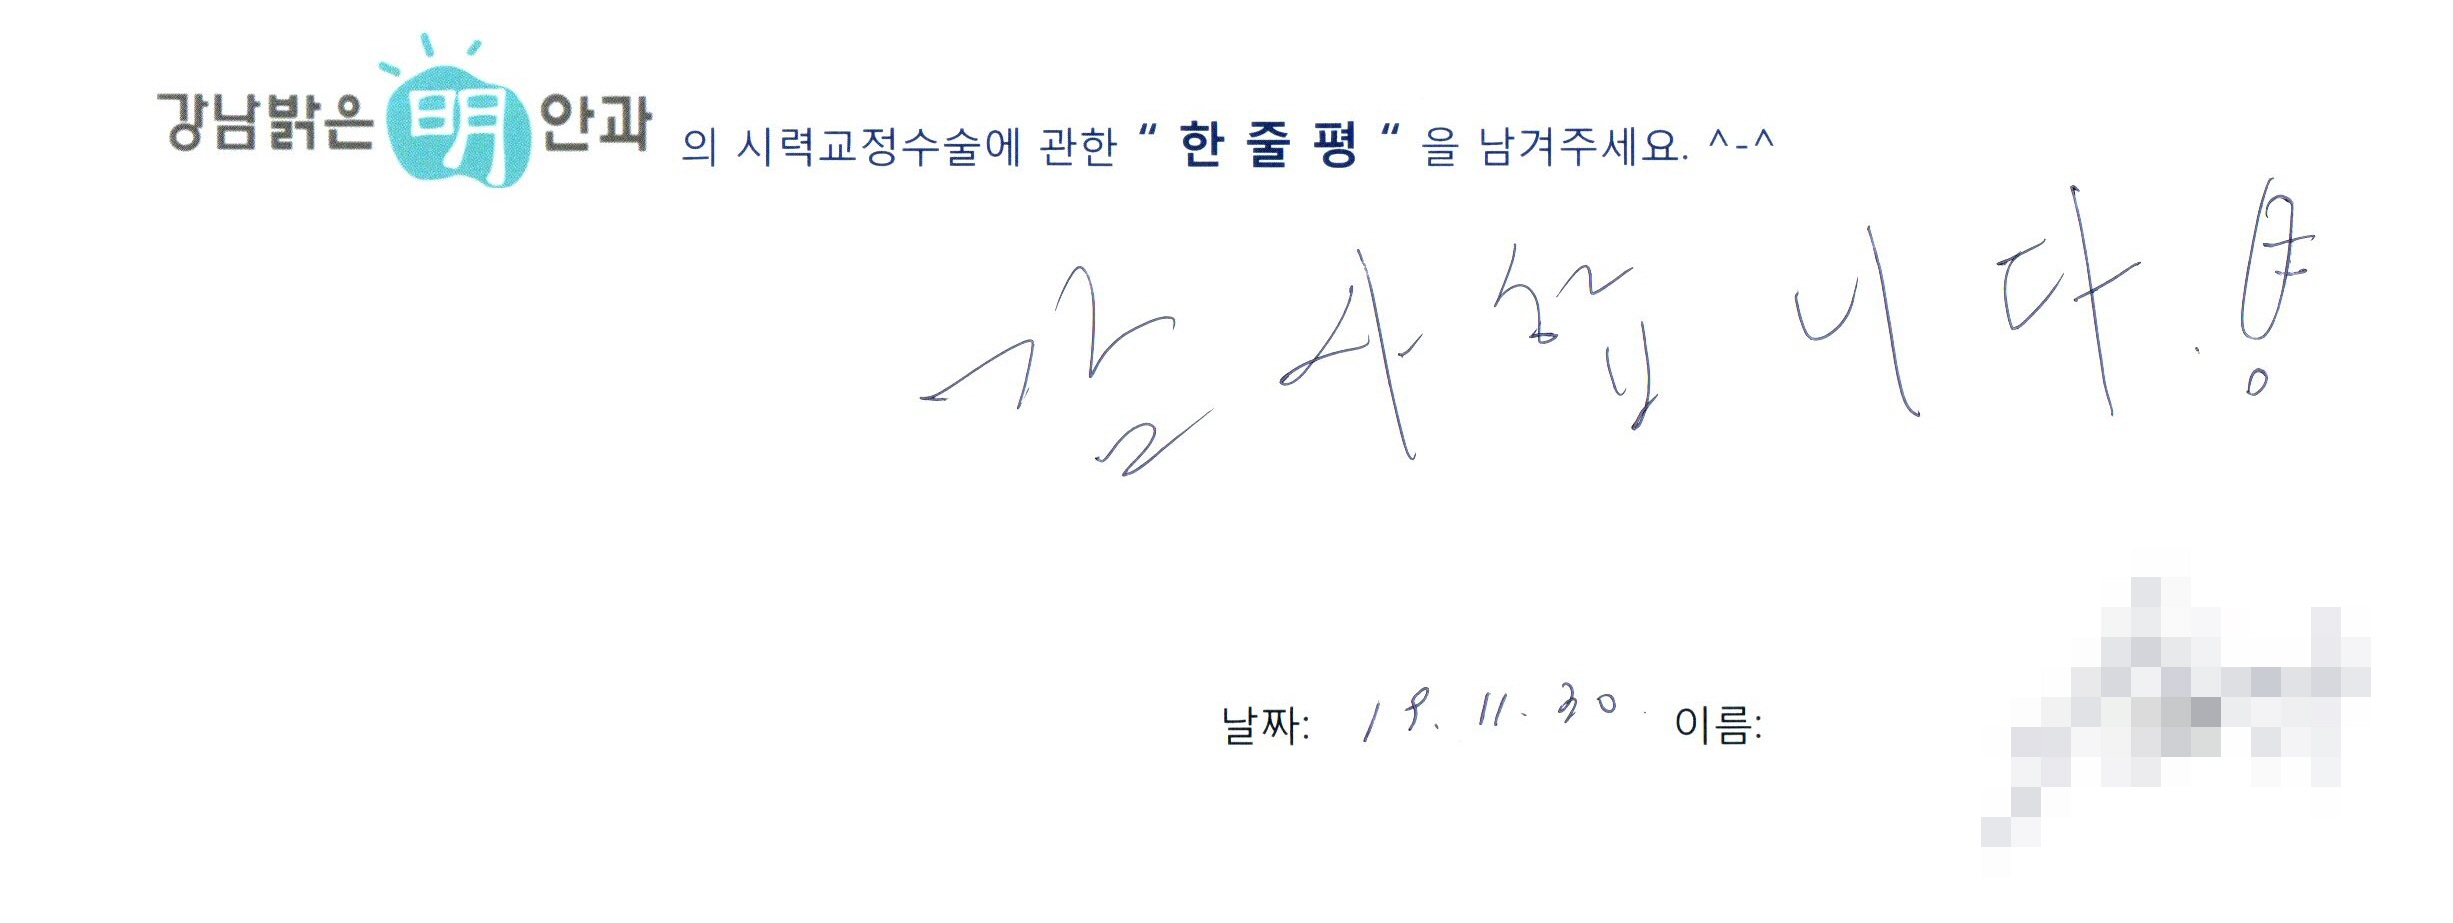 강남밝은明안과 의 시력교정수술에 관한 “ 한 줄 평 “ 을 남겨주세요. ^-^
감사합니다.!
날짜: 19. 11. 30. 이름: